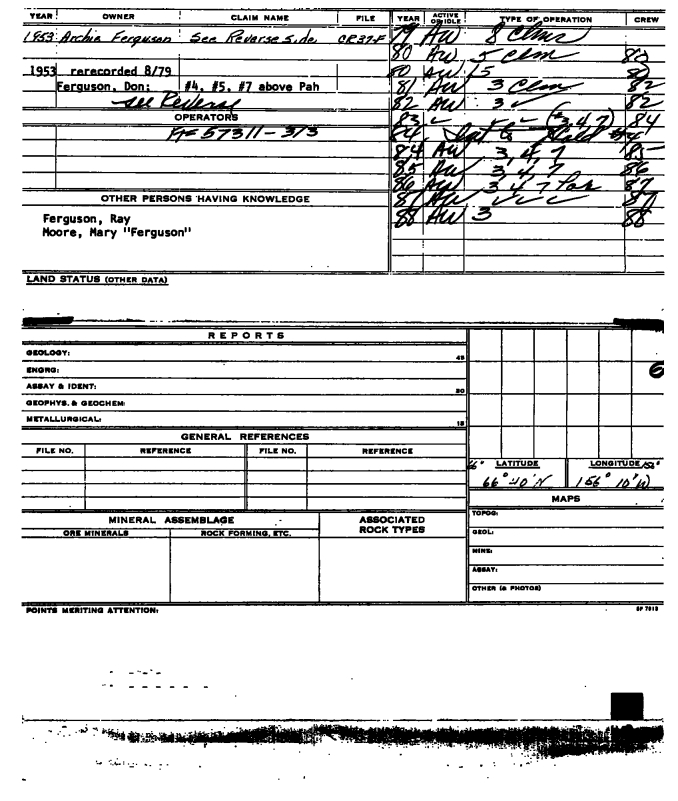 YEAR OWNER CLAIM NAME FILE
1953 Archie Ferguson See Reverse side CR37-F
1953 rerecorded 8/79
Ferguson, Don: #4, #5, #7 above Pah
see Reverse
OPERATORS
57311-313
OTHER PERSONS HAVING KNOWLEDGE
Ferguson, Ray
Moore, Mary "Ferguson"
LAND STATUS (OTHER DATA)
YEAR ACTIVE OR IDLE TYPE OF OPERATION CREW
79 AW 8 Clms
80 AW 5 Clm 80
80 AW 5 80
81 AW 3 Clm 82
82 AW 3 ✓ 82
83 ✓ ✓ (3 4 7) 84
84
84 AW 3, 4, 7 85
85 AW 3, 4, 7 86
86 AW 3 4 7 87
87 AW ✓ ✓ ✓ 87
88 AW 3 88
REPORTS
GEOLOGY: 45
ENGRG:
ASSAY & IDENT: 30
GEOPHYS. & GEOCHEM:
METALLURGICAL: 15
GENERAL REFERENCES
FILE NO. REFERENCE FILE NO. REFERENCE
MINERAL ASSEMBLAGE ASSOCIATED ROCK TYPES
ORE MINERALS ROCK FORMING, ETC.
6
66° LATITUDE LONGITUDE 156°
66° 40' N 156° 10' W
MAPS
TOPOG:
GEOL:
MINE:
ASSAY:
OTHER (& PHOTOS)
POINTS MERITING ATTENTION: SP 7013